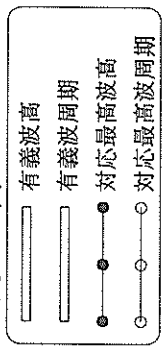 有義波高
有義波周期
対応最高波高
対応最高波周期